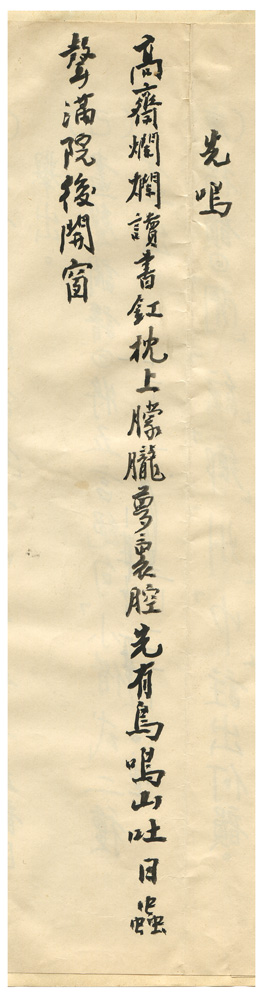 先鳴
高齋爛爛讀書釭枕上朦朧夢裏腔先有鳥鳴山吐日蟲
聲滿院後開窗